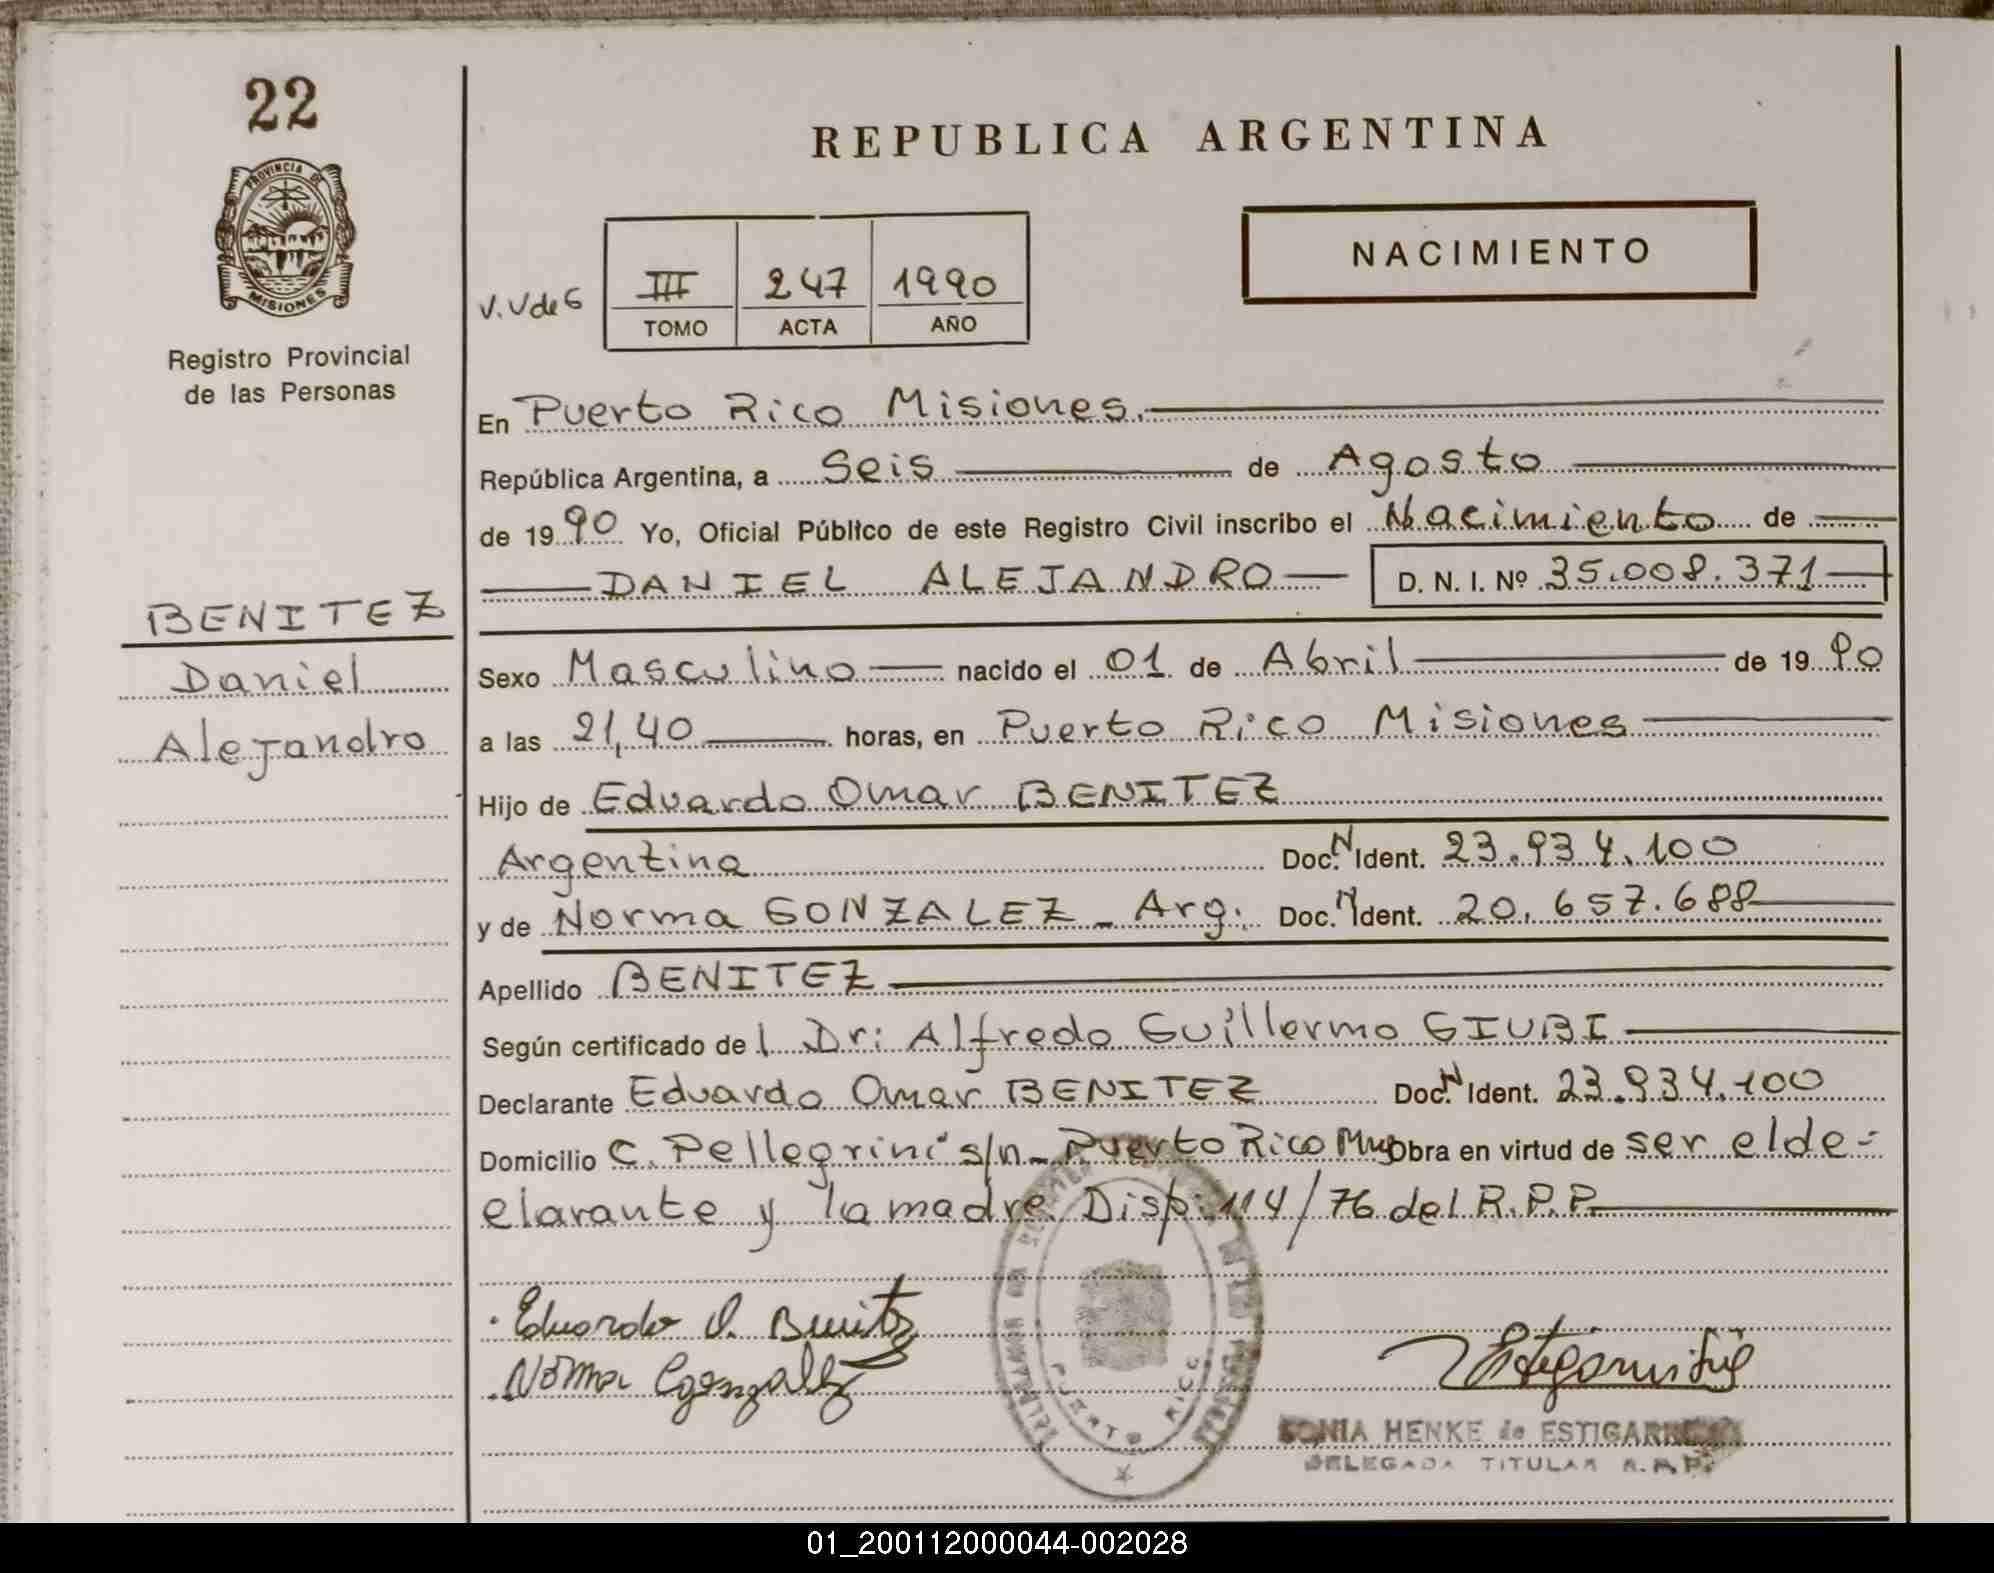 22
PROVINCIA DE
MISIONES
Registro Provincial
de las Personas
BENITEZ
Daniel
Alejandro
REPUBLICA ARGENTINA
NACIMIENTO
V. V de G
III 247 1990
TOMO ACTA AÑO
En Puerto Rico Misiones.
República Argentina, a Seis de Agosto
de 1990 Yo, Oficial Público de este Registro Civil inscribo el Nacimiento de
DANIEL ALEJANDRO D. N. I. Nº 35.008.371
Sexo Masculino nacido el 01 de Abril de 1990
a las 21,40 horas, en Puerto Rico Misiones
Hijo de Eduardo Omar BENITEZ
Argentina Doc. N Ident. 23.934.100
y de Norma GONZALEZ - Arg. Doc. N Ident. 20.657.688
Apellido BENITEZ
Según certificado del Dr: Alfredo Guillermo GIUBI
Declarante Eduardo Omar BENITEZ Doc. N Ident. 23.934.100
Domicilio C. Pellegrini s/n - Puerto Rico Obra en virtud de ser el de-
clarante y la madre Disp. 114/76 del R.P.P.
Eduardo O. Benitez
Norma Gonzalez
PUERTO RICO
SONIA HENKE de
DELEGADA TITULAR R.P.P.
01_200112000044-002028